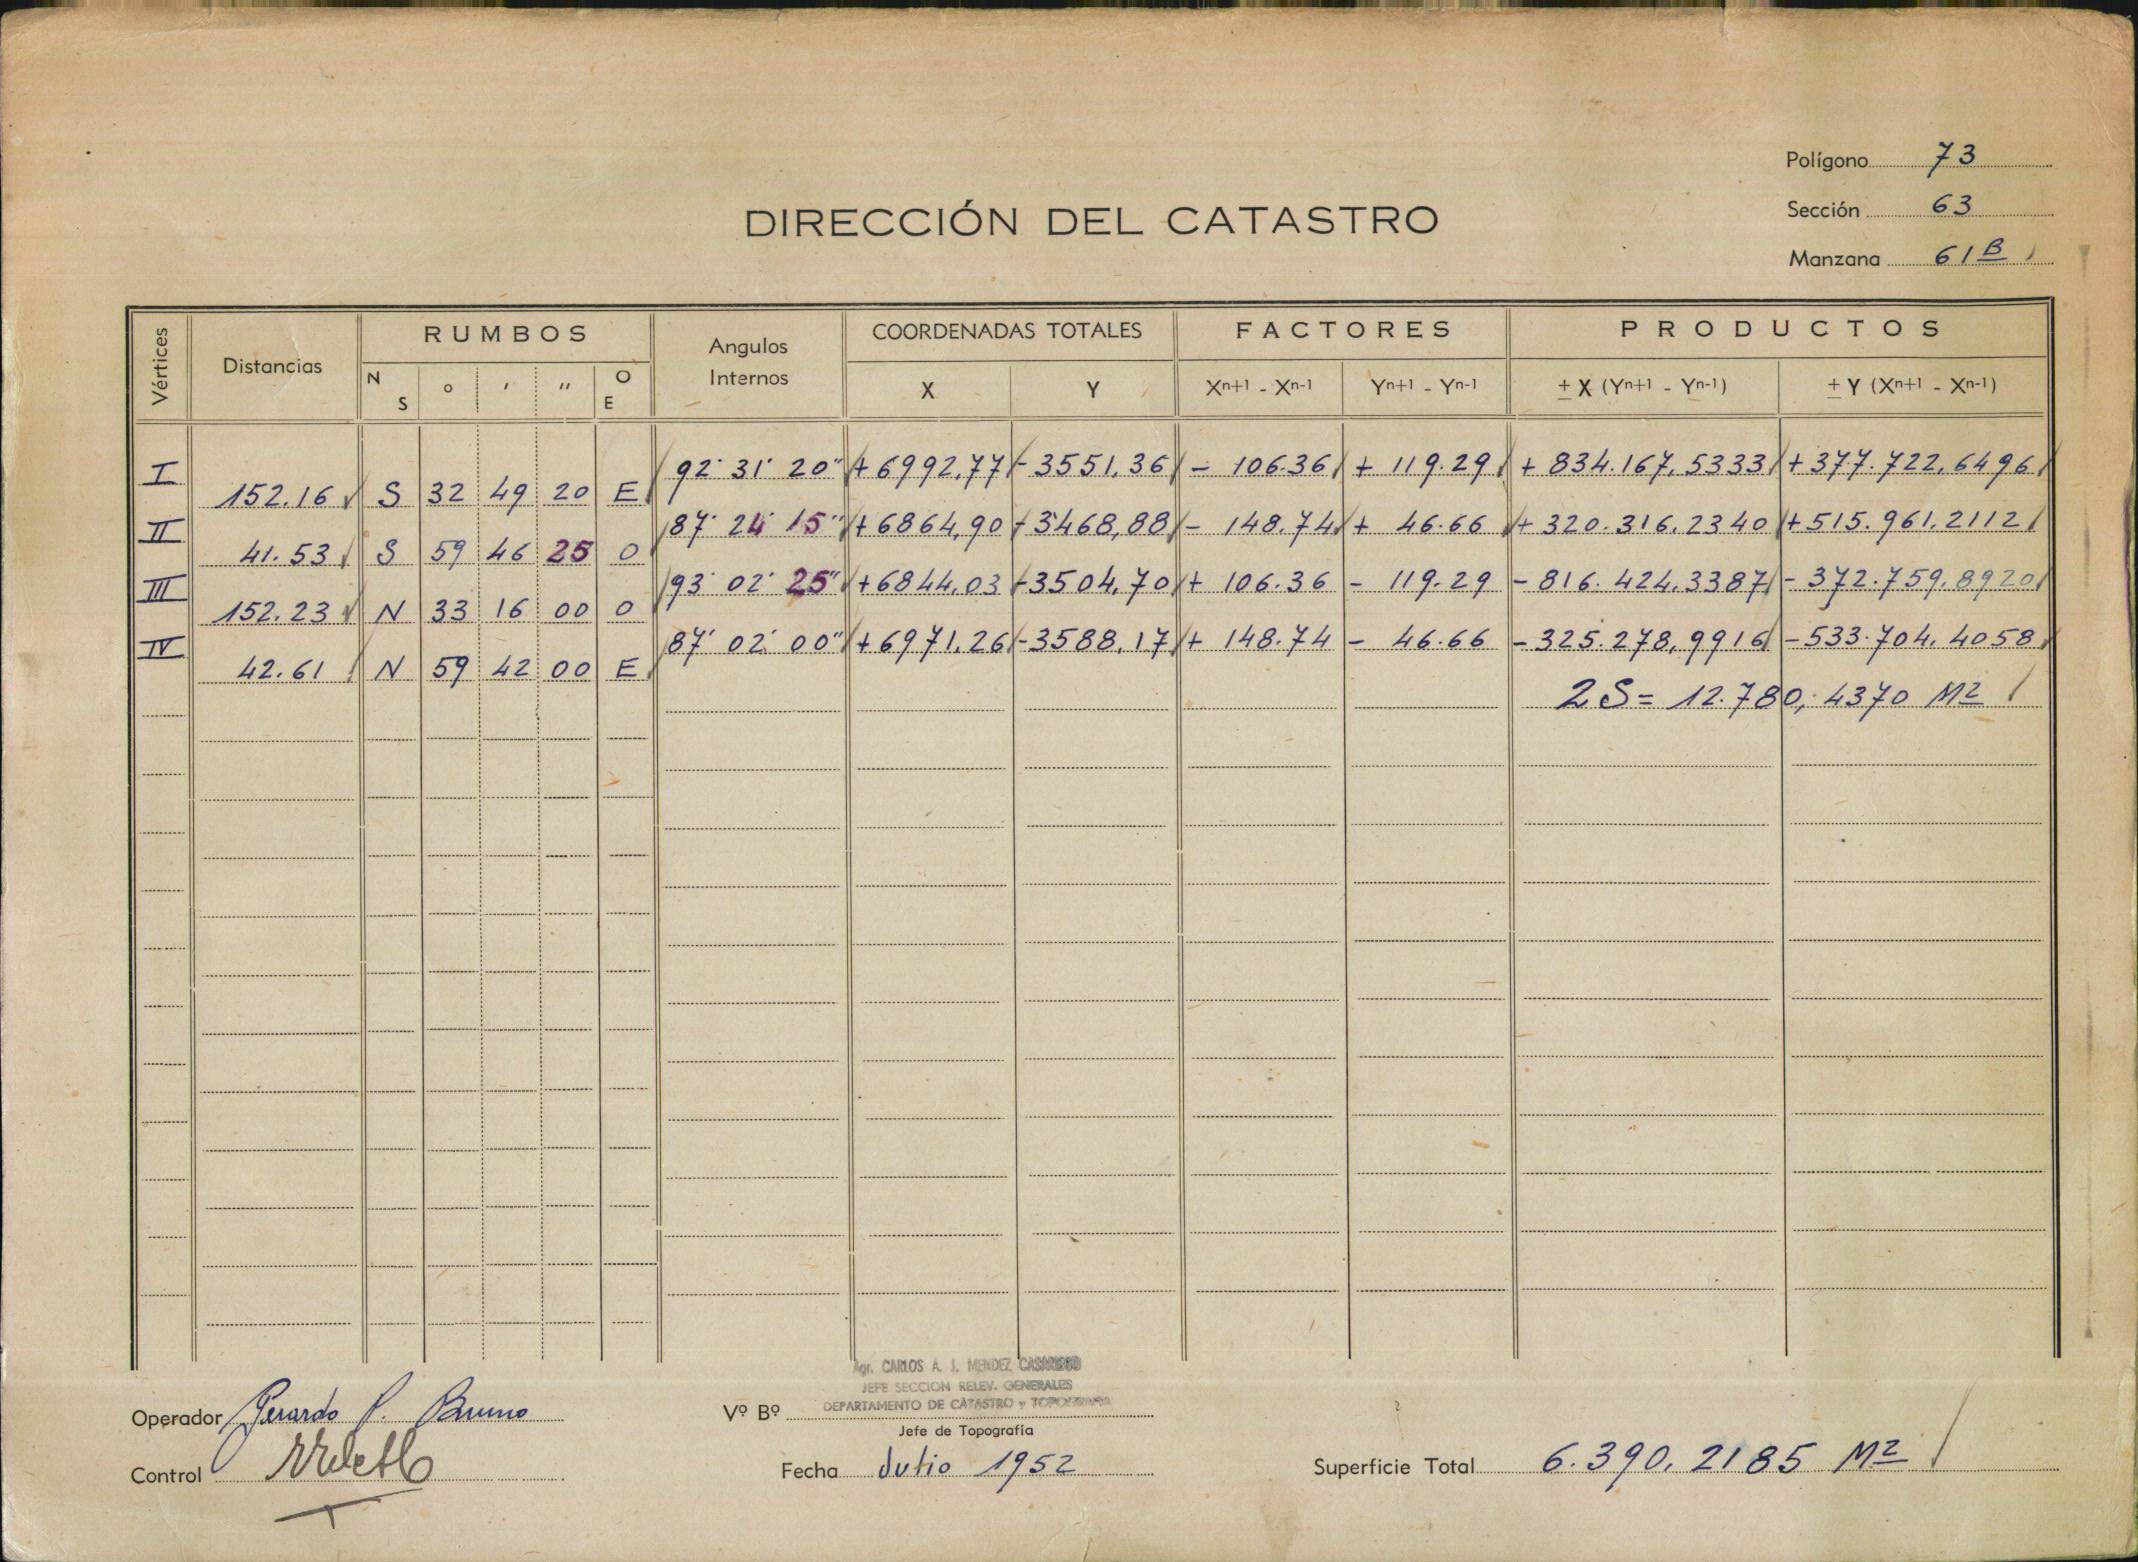 Polígono 73
DIRECCIÓN DEL CATASTRO
Sección 63
Manzana 61 B
Vértices Distancias RUMBOS Angulos Internos COORDENADAS TOTALES FACTORES PRODUCTOS
N S ° ' " O E X Y Xn+1 - Xn-1 Yn+1 - Yn-1 ± X (Yn+1 - Yn-1) ± Y (Xn+1 - Xn-1)
I 92° 31' 20" +6992,77 -3551,36 - 106.36 + 119.29 + 834.167,5333 +377.722,6496
152.16 S 32 49 20 E
II 87° 24' 15" +6864,90 -3468,88 - 148.74 + 46.66 +320.316.2340 +515.961,2112
41.53 S 59 46 25 O
III 93° 02' 25" +6844,03 -3504,70 + 106.36 - 119.29 -816.424,3387 -372.759,8920
152.23 N 33 16 00 O
IV 87° 02' 00" +6971,26 -3588,17 + 148.74 - 46.66 -325.278,9916 -533.704,4058
42.61 N 59 42 00 E
2S= 12.780,4370 M2
Agr. CARLOS A. I. MENDEZ CASARIEGO
JEFE SECCION RELEV. GENERALES
DEPARTAMENTO DE CATASTRO y TOPOGRAFIA
Operador Gerardo P. Bruno
Vº Bº
Jefe de Topografía
Control
Fecha Julio 1952
Superficie Total 6.390,2185 M2